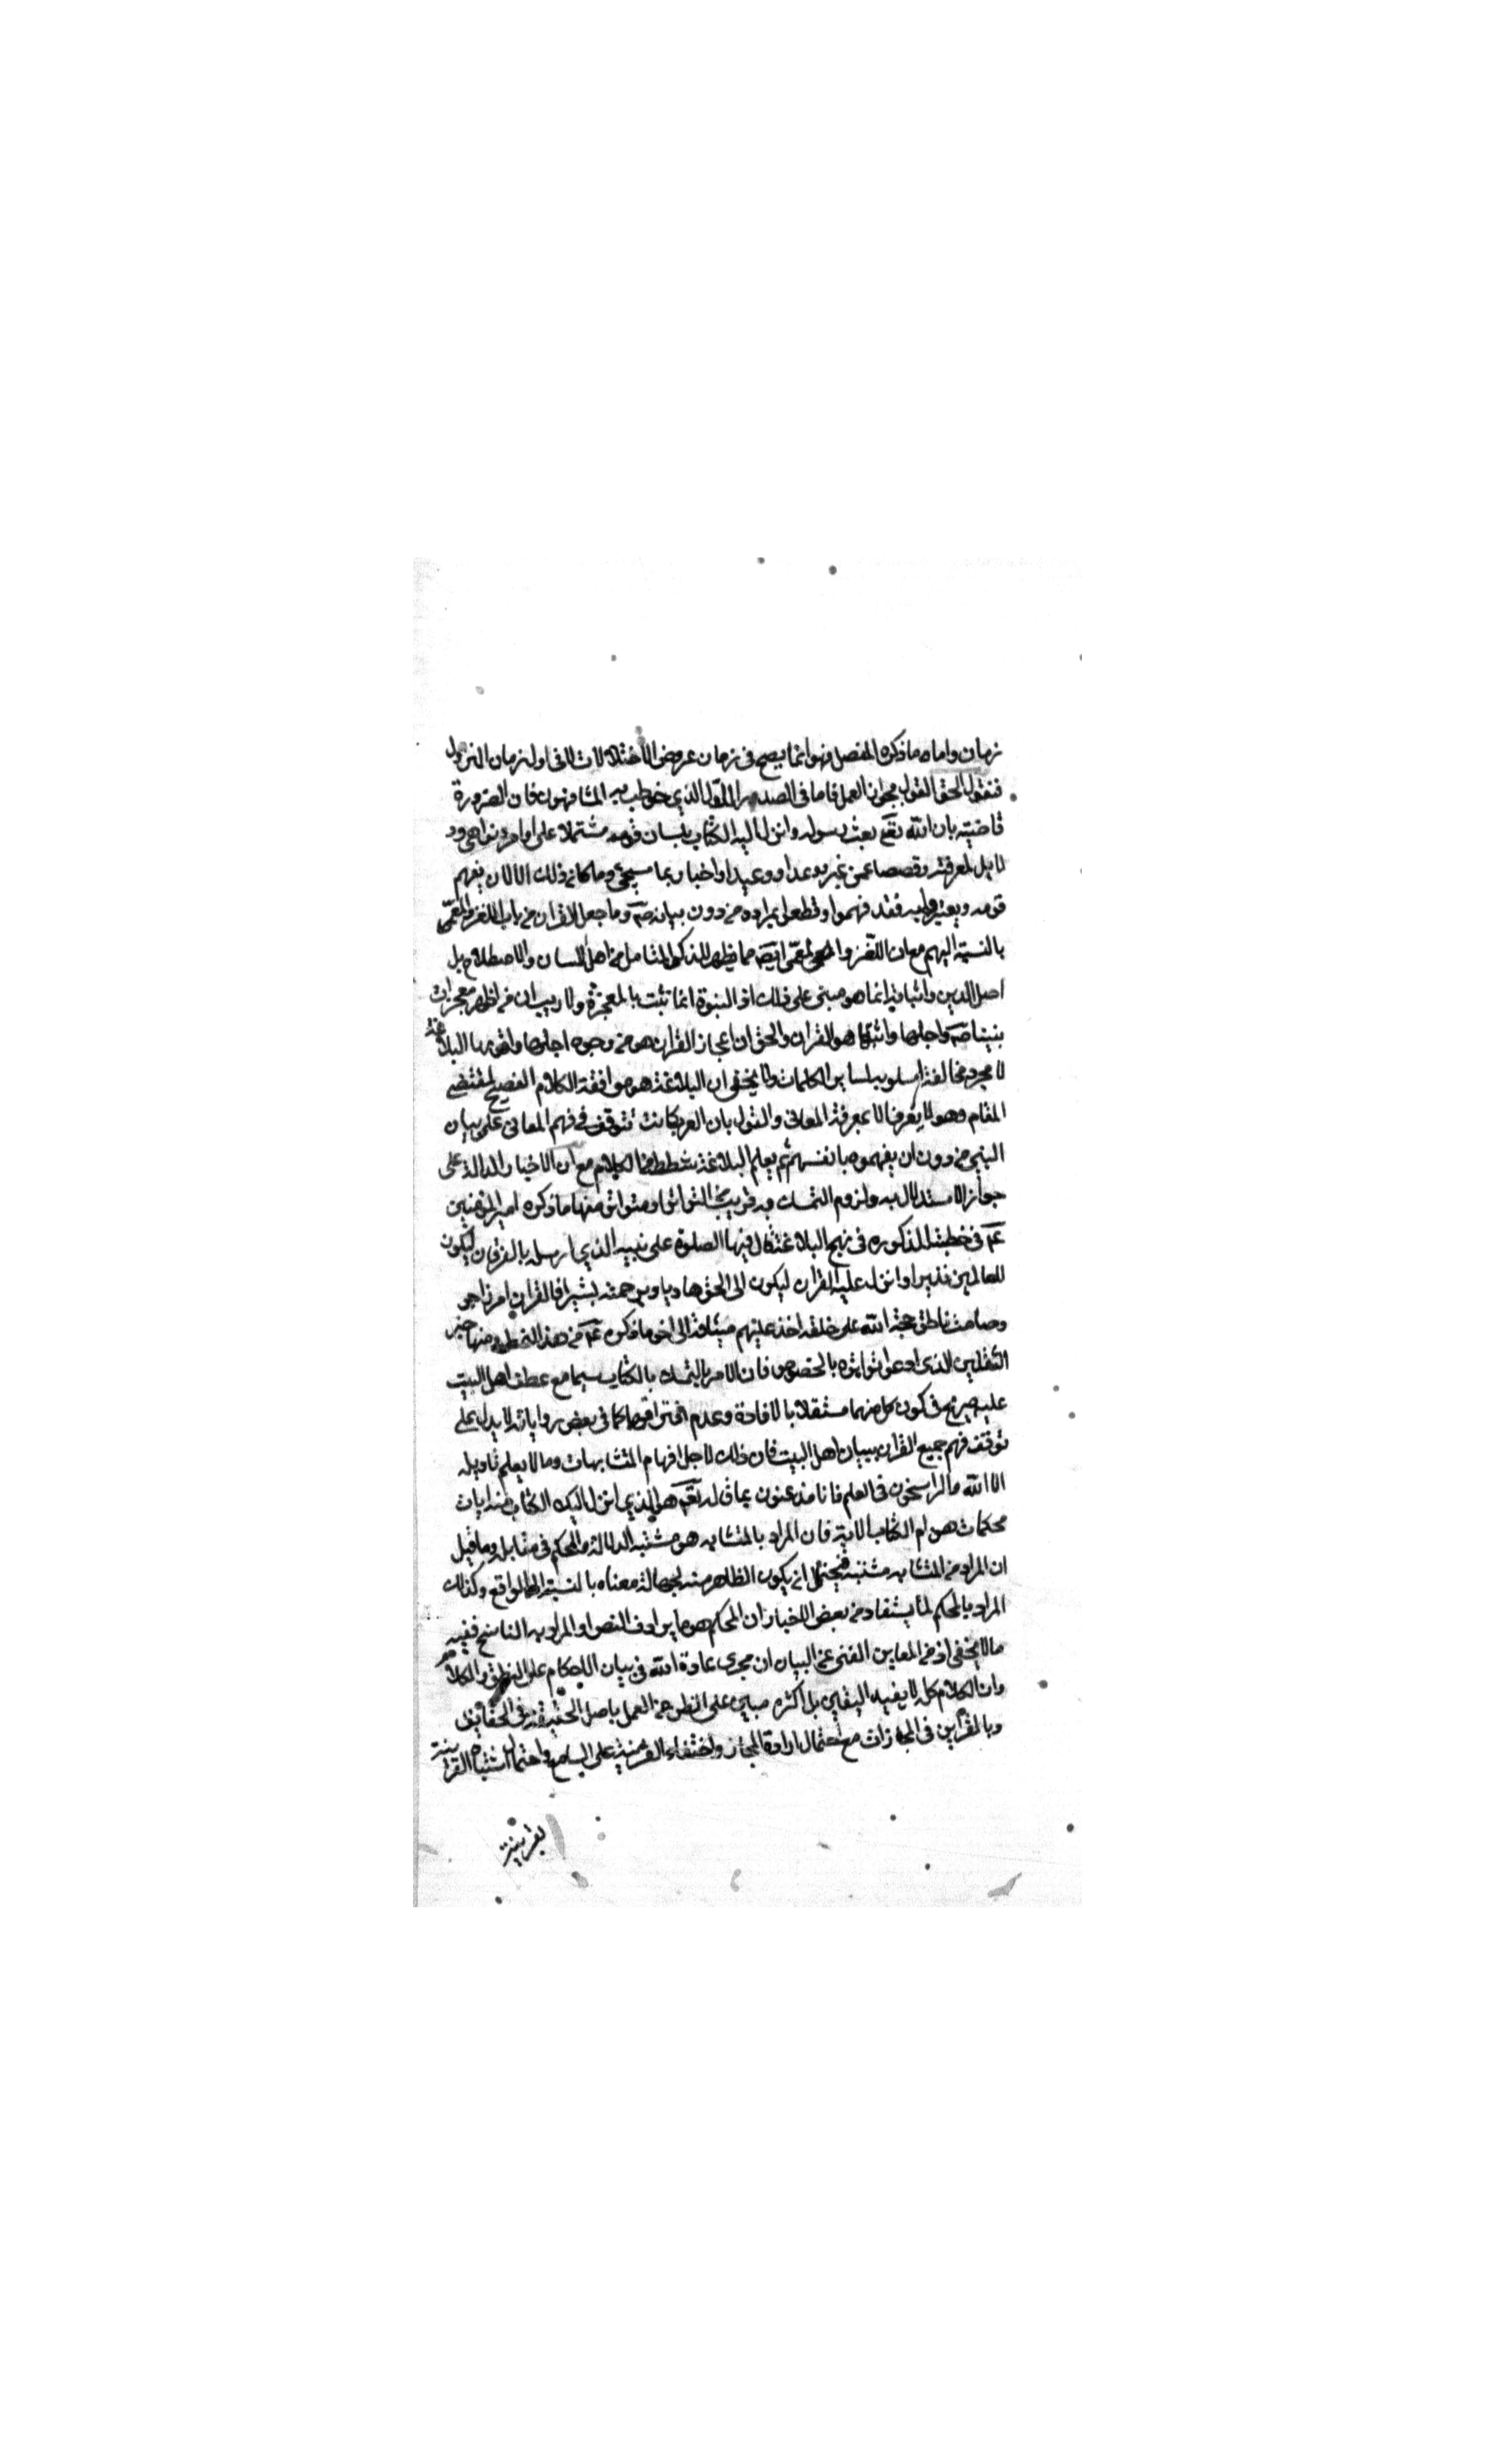 زمان واما ما ذكره المفصل فهو انما يصح في زمان عروض الاختلالات لا في اول زمان النزول
فنقول الحق القول بجواز العمل فاما في الصدر الاول الذي خوطب به المشافهون فان الضرورة
قاضية بان الله تع بعث رسوله وانزل اليه الكتاب بلسان قومه مشتملا على اوامر ونواهي ود
لايل لمعرفته وقصصا عمن غبر ووعدا ووعيدا واخبارا بما سيجئ وما كان ذلك الا لان يفهم
قومه ويعتبروا به فقد فهموا وقطعوا بمراده من دون بيانه ص وما جعل القران من باب اللغز والمعمى
بالنسبة اليهم مع ان اللغز والمعمى ايض مما يظهر للذكي المتامل من اهل اللسان والاصطلاح بل
اصل الدين واثباته انما هو مبني على ذلك اذ النبوة انما تثبت بالمعجزة ولا ريب ان من اظهر معجزات
نبينا ص واجلها واتقنها هو القران والحق ان اعجاز القران هو من وجوه اجلها واقواها البلاغة
لا مجرد مخالفة اسلوبه لساير الكلمات ولا يخفى ان البلاغة هو موافقة الكلام الفصيح لمقتضى
المقام وهو لا يعرف الا بمعرفة المعاني والقول بان العرب كانت تتوقف في فهم المعاني على بيان
النبي من دون ان يفهموه بانفسهم ثم يعلم البلاغة شطط من الكلام مع ان الاخبار الدالة على
جواز الاستدلال به ولزوم التمسك به قريب من التواتر او متواتر منها ما ذكره امير المؤمنين
ع في خطبته المذكوره في نهج البلاغة قال فيها الصلوة على نبيه الذي ارسله بالفرقان ليكون
للعالمين نذيرا وانزل عليه القران ليكون الى الحق هاديا وبرحمته بشيرا فالقران امر زاجر
وصامت ناطق حجة الله على خلقه اخذ عليهم ميثاقه الى اخر ما ذكره ع من هذا النمط ومنها خبر
الثقلين الذي ادعوا تواتره بالخصوص فان الامر بالتمسك بالكتاب سيما مع عطف اهل البيت
عليه صريح في كون كل منهما مستقلا بالافادة وعدم افتراقهما كما في بعض رواياته لا يدل على
توقف فهم جميع القران ببيان اهل البيت فان ذلك لاجل افهام المتشابهات وما لا يعلم تاويله
الا الله والراسخون في العلم فانا مذعنون بما قال تع هو الذي انزل اليك الكتاب منه ايات
محكمات هن ام الكتاب الاية فان المراد بالمتشابه هو مشتبه الدلالة والمحكم في مقابله وما قيل
ان المراد من المتشابه مشتبه فيحتمل ان يكون الظاهر منه لجهالة معناه بالنسبة الى الواقع وكذلك
المراد بالمحكم لما يستفاد من بعض الاخبار ان المحكم هو ما يرادف النص او المراد به الناسخ ففيه
ما لا يخفى اذ من المعاين الغني عن البيان ان مجرى عادة الله في بيان الاحكام على النطق والكلام
وان الكلام كله لا يفيد اليقين بل اكثره مبني على الظن من العمل باصل الحقيقة في الحقايق
وبالقراين في المجازات مع احتمال ارادة المجاز واختفاء القرينة على السامع واحتمال اشتباه القرينة
بقرينة